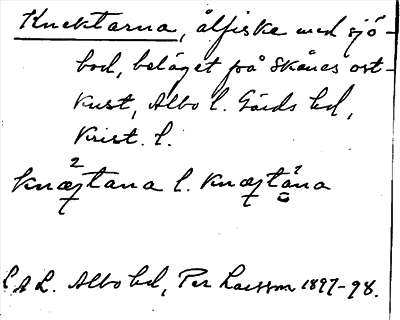 Knektarna, ålfiske med sjö-
bod, beläget på Skånes ost-
kust, Albo l. Gärds hd,
Krist. l.
knæktana l. knæktåna
L A L. Albo hd, Per Larsson 1897-98.